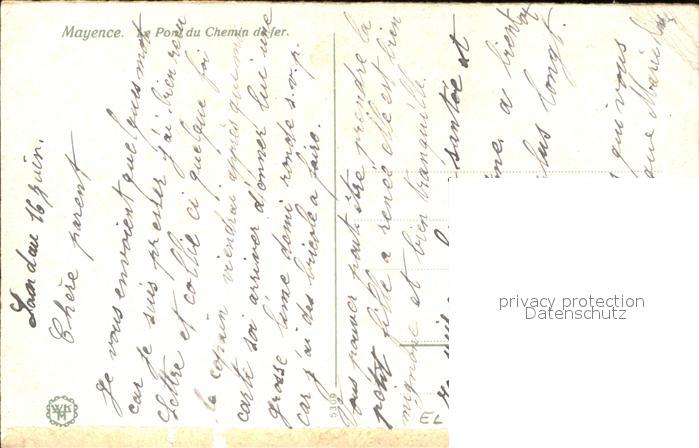 Mayence. Le Pont du Chemin de fer.
Landau 16 juin.
Chère parent
Je vous envoient quelques mot
car je suis presser j'ai bien reçu
lettre et collie ci quelque foi
le copain viendrai après que
carte soi arriver donner lui une
grosse lime demi ronde s.v.p.
car j'ai des bricole a faire.
Vous pouver peut être prendre la
petit fille a renée elle est bien
mignone et bien tranquille.
santée et
a bientot
plus longt.
qui vous
que Marie
5369
EL
privacy protection
Datenschutz